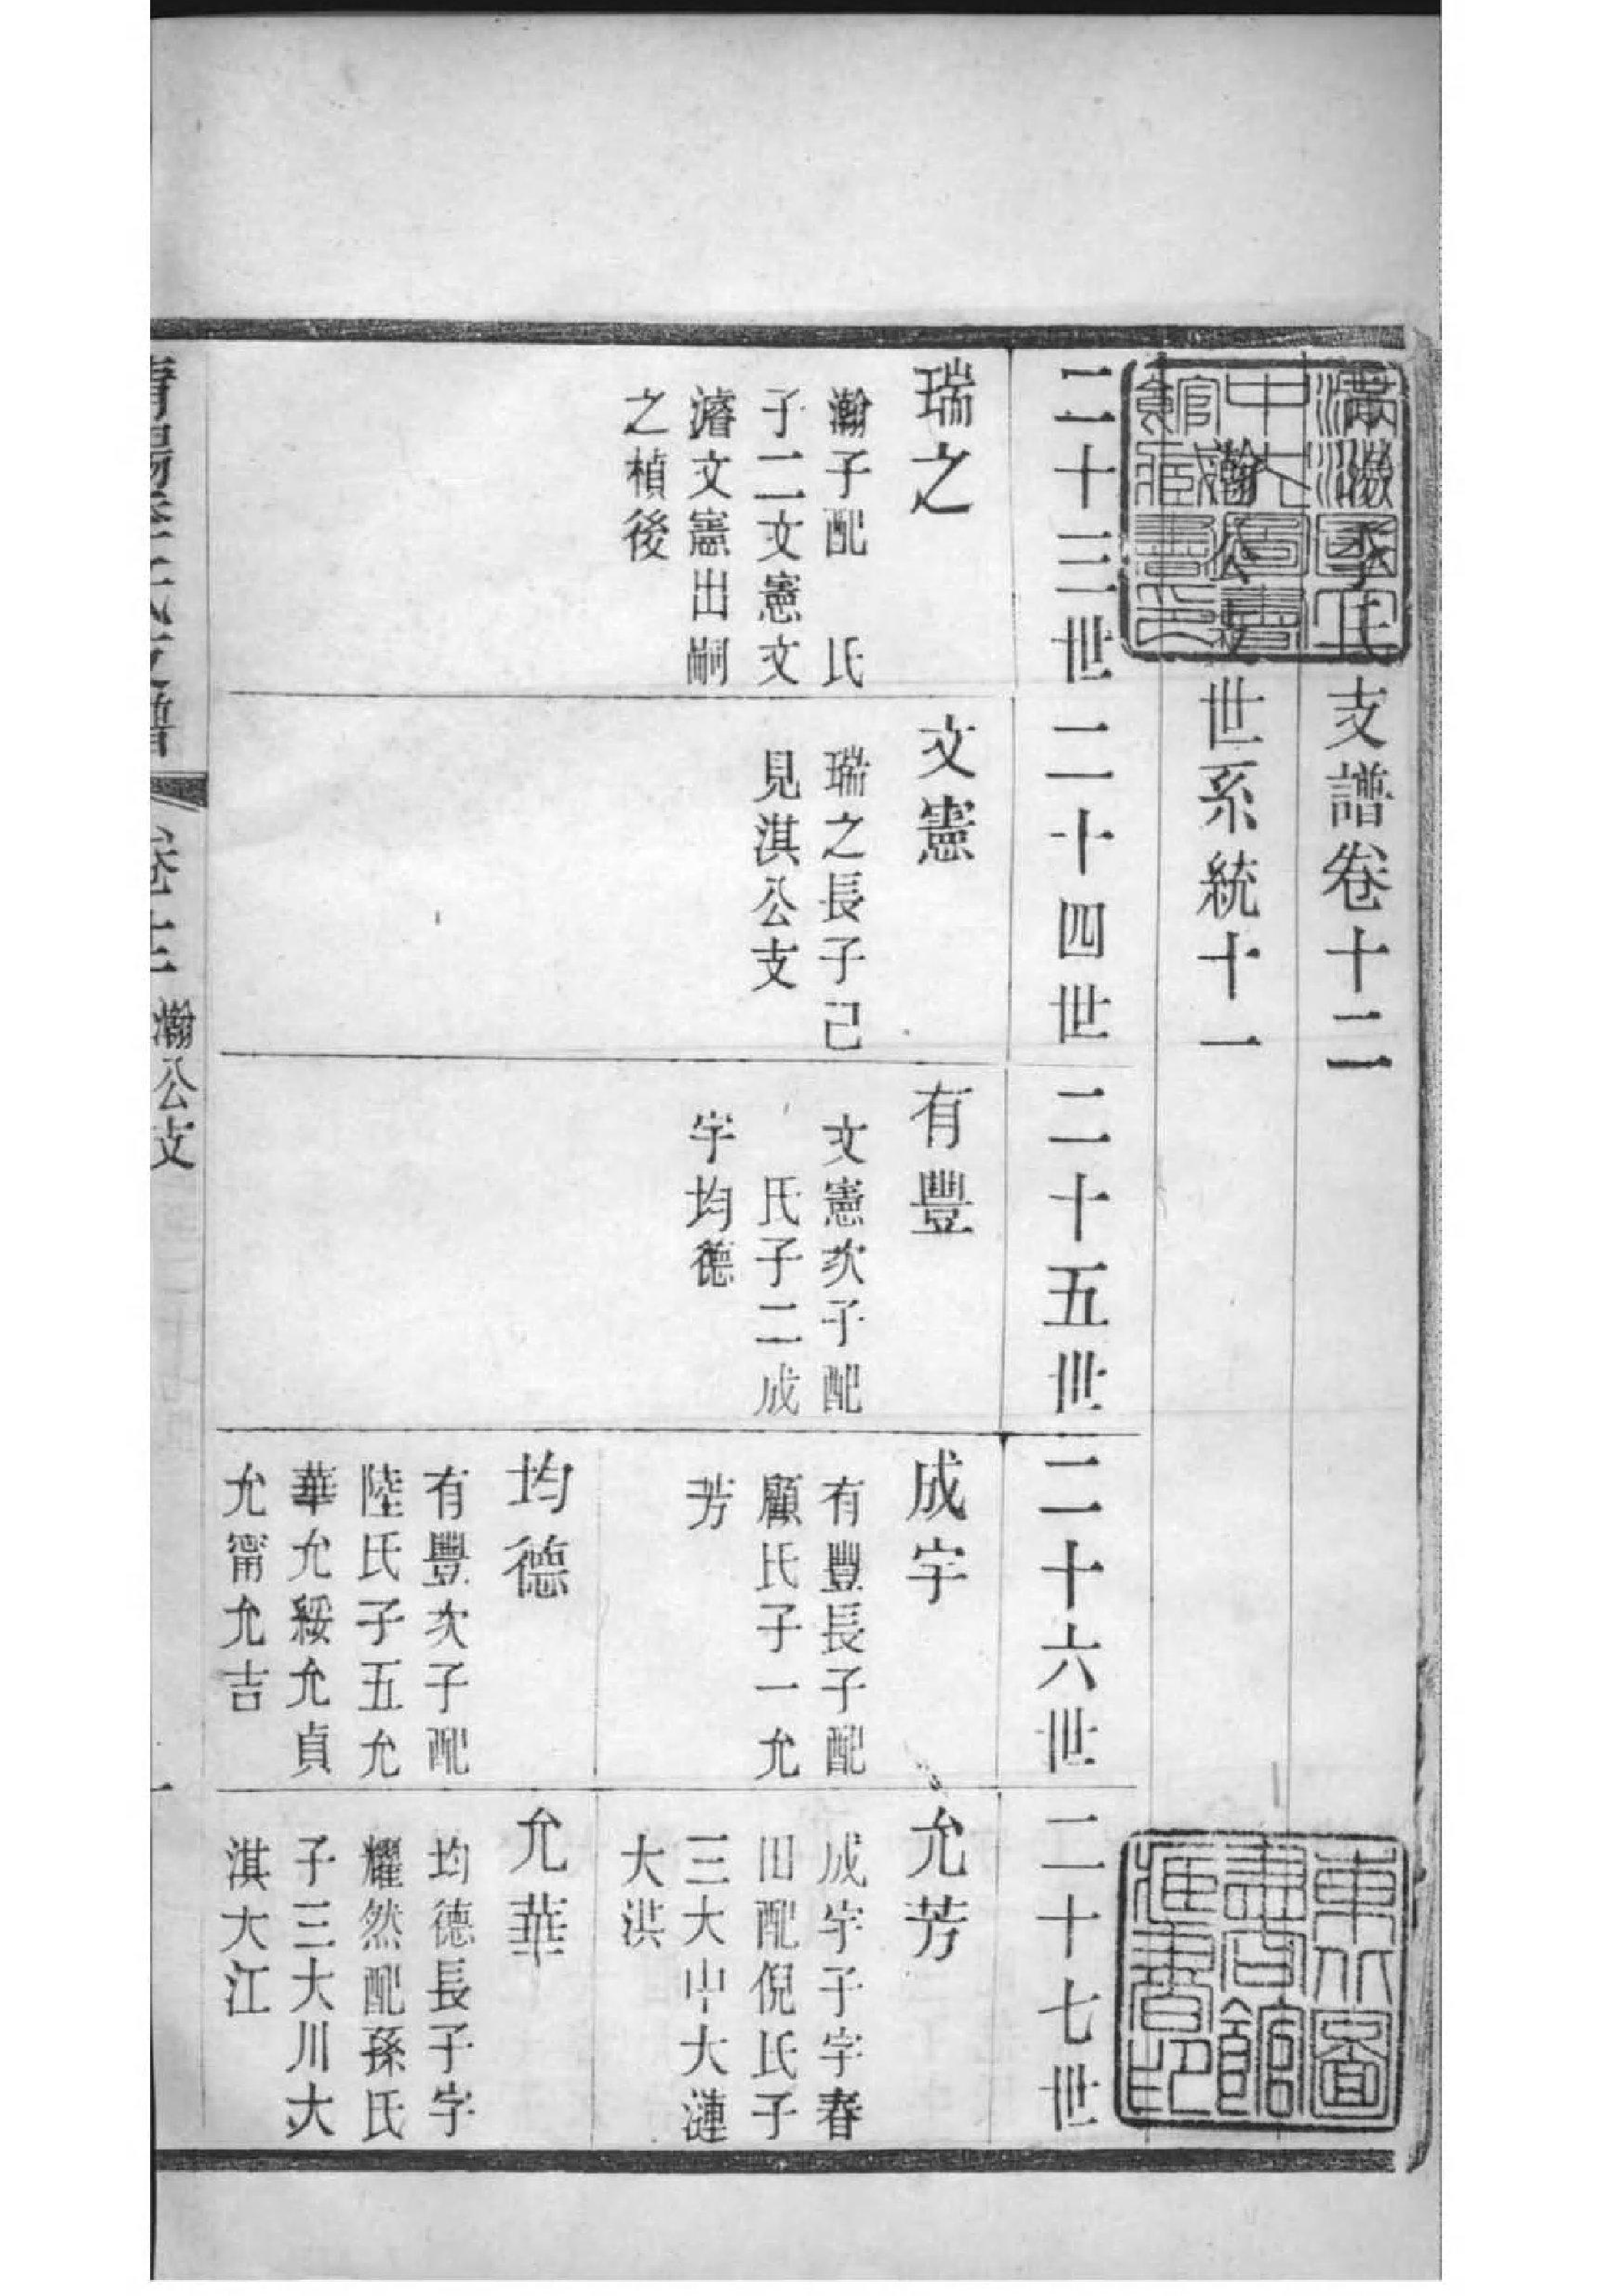 李氏支譜卷十二
瀚公支世系統十一
二十三世
二十四世
二十五世
二十六世
二十七世
瑞之
瀚子配　氏
子二文憲文
濬文憲出嗣
之楨後
文憲
瑞之長子己
見淇公支
有豐
文憲次子配
　氏子二成
宇均德
成宇
有豐長子配
顧氏子一允
芳
均德
有豐次子配
陸氏子五允
華允綏允貞
允甯允吉
允芳
成宇子字春
田配倪氏子
三大中大漣
大洪
允華
均德長子字
耀然配孫氏
子三大川大
淇大江
氏支譜
瀚公支
一